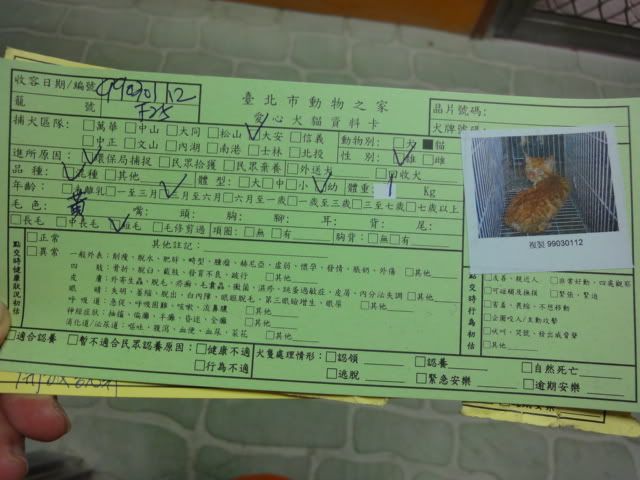 收容日期/編號
籠 號 F25
臺北市動物之家
愛心犬貓資料卡
晶片號碼:
犬牌號碼:
捕犬區隊: □萬華 □中山 □大同 □松山 □大安 □信義
□中正 □文山 □內湖 □南港 □士林 □北投
動物別: □犬 ■貓
進所原因: □環保局捕捉 □民眾拾獲 □民眾棄養 □外送犬
性 別: □雄 □雌
品種: □混種 □其他
體型: □大 □中 □小 □幼 體重: Kg
年齡: □離乳 □一至三月 □三月至六月 □六月至一歲 □一歲至三歲 □三至七歲 □七歲以上
毛色: 黃 嘴: 頭: 胸: 腳: 耳: 背: 尾:
□長毛 □中長毛 □短毛 □毛修剪過 項圈: □無 □有 胸背: □無 □有
複製 99030112
點交時健康狀況初估
□正常 其他註記:
□異常
一般外表: 削瘦、脫水、肥胖、畸型、腫瘤、赫尼亞、虛弱、懷孕、發情、脹奶、外傷 □其他
四 肢: 骨折、脫臼、截肢、發育不良、跛行 □其他
眼 睛: 失明、萎縮、脫出、白內障、眼瞼脫毛、第三眼瞼增生、眼屎 □其他
呼吸道: 急促、呼吸困難、咳嗽、流鼻膿 □其他
神經症狀: 抽搐、偏癱、半癱、昏迷、全癱 □其他
消化道/泌尿道: 嘔吐、腹瀉、血便、血尿、菜花 □其他
點交時行為初估
□友善、親近人 □非常好動、四處觀察
□可碰觸及撫摸 □緊張、緊迫
□害羞、畏縮、不想移動
□企圖咬人/主動攻擊
□吠叫、哭號、發出威脅聲
□其他
□適合認養 □暫不適合民眾認養原因: □健康不適
□行為不適
犬隻處理情形: □認領 □認養 □自然死亡
□逃脫 □緊急安樂 □逾期安樂